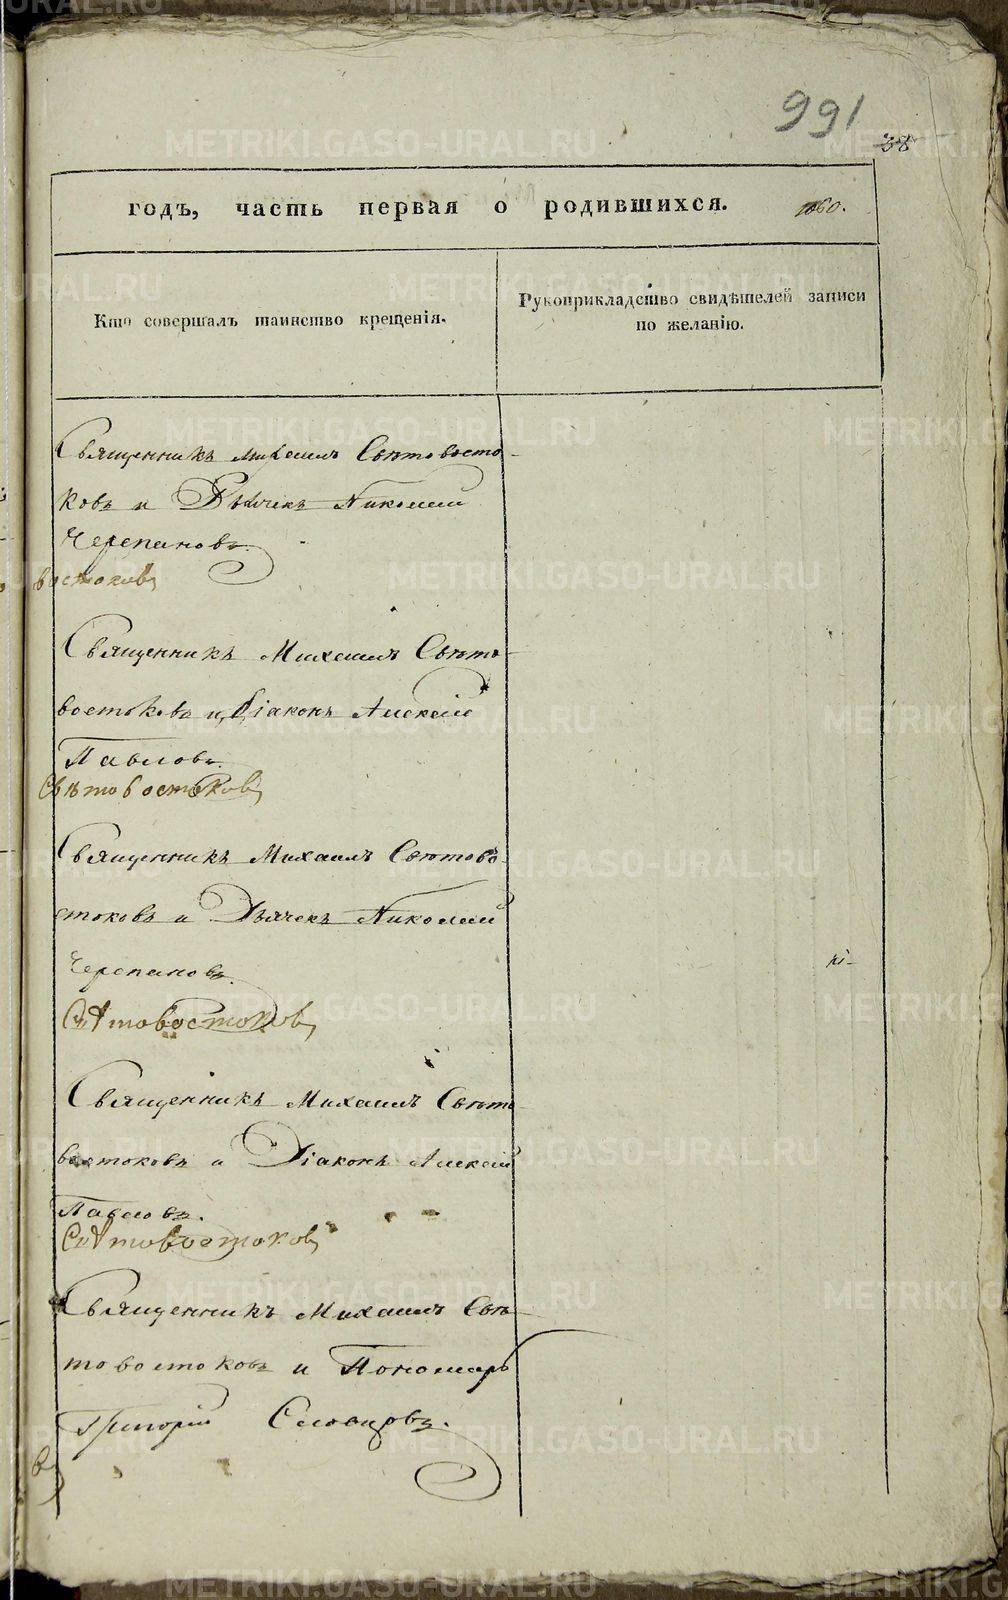 991
38
годъ, часть первая о родившихся. 1860.
Кто совершалъ таинство крещенія.
Рукоприкладство свидѣтелей записи
по желанію.
Священникъ Михаилъ Свѣтовосто-
ковъ и Дьячекъ Николай
Черепановъ.
востоковъ
Священникъ Михаилъ Свѣто-
востоковъ и Діаконъ Алексій
Павловъ.
Свѣтовостоковъ
Священникъ Михаилъ Свѣтово-
стоковъ и Дьячекъ Николай
Черепановъ.
Свѣтовостоковъ
Священникъ Михаилъ Свѣто-
востоковъ и Діаконъ Алексій
Павловъ.
Свѣтовостоковъ
Священникъ Михаилъ Свѣ-
товостоковъ и Пономарь
Григорій Словцовъ.
въ
METRIKI.GASO-URAL.RU